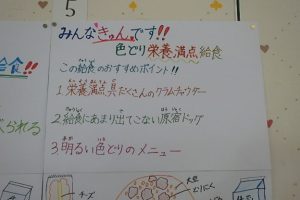 5
みんなきゅんです!!
色どり栄養満点給食
この給食のおすすめポイント!!
1.栄養満点具だくさんのクラムチャウダー
2.給食にあまり出てこない原宿ドッグ
3.明るい色どりのメニュー
給食!!
べられる
チーズ
大豆
にんじん